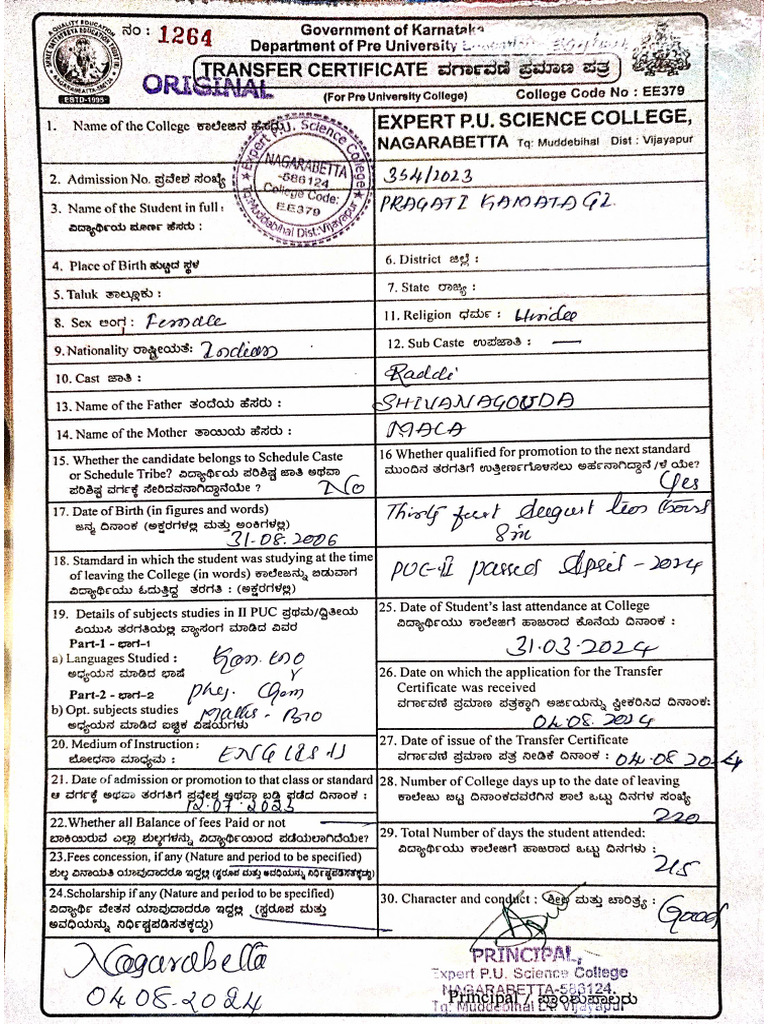 A QUALITY EDUCATION
ESTD-1995
ನಂ : 1264
Government of Karnataka
Department of Pre University
ORIGINAL
TRANSFER CERTIFICATE ವರ್ಗಾವಣೆ ಪ್ರಮಾಣ ಪತ್ರ
(For Pre University College) College Code No : EE379
1. Name of the College ಕಾಲೇಜಿನ ಹೆಸರು
EXPERT P.U. SCIENCE COLLEGE,
NAGARABETTA Tq: Muddebihal Dist : Vijayapur
Expert P.U. Science College
NAGARABETTA
-586124
College Code:
EE379
Tq:Muddebihal Dist:Vijayapur
2. Admission No. ಪ್ರವೇಶ ಸಂಖ್ಯೆ 354/2023
3. Name of the Student in full : PRAGATI GAMATAGI
ವಿದ್ಯಾರ್ಥಿಯ ಪೂರ್ಣ ಹೆಸರು :
4. Place of Birth ಹುಟ್ಟಿದ ಸ್ಥಳ
6. District ಜಿಲ್ಲೆ :
5. Taluk ತಾಲ್ಲೂಕು :
7. State ರಾಜ್ಯ :
8. Sex ಅಂಗ : Female
11. Religion ಧರ್ಮ : Hindu
9. Nationality ರಾಷ್ಟ್ರೀಯತೆ: Indian
12. Sub Caste ಉಪಜಾತಿ : —
10. Cast ಜಾತಿ : Raddi
13. Name of the Father ತಂದೆಯ ಹೆಸರು : SHIVANAGOUDA
14. Name of the Mother ತಾಯಿಯ ಹೆಸರು : MALA
15. Whether the candidate belongs to Schedule Caste
or Schedule Tribe? ವಿದ್ಯಾರ್ಥಿಯ ಪರಿಶಿಷ್ಟ ಜಾತಿ ಅಥವಾ
ಪರಿಶಿಷ್ಟ ವರ್ಗಕ್ಕೆ ಸೇರಿದವನಾಗಿದ್ದಾನೆಯೇ ? No
16 Whether qualified for promotion to the next standard
ಮುಂದಿನ ತರಗತಿಗೆ ಉತ್ತೀರ್ಣಗೊಳಿಸಲು ಅರ್ಹನಾಗಿದ್ದಾನೆ /ಳೆ ಯೇ?
Yes
17. Date of Birth (in figures and words)
ಜನ್ಮ ದಿನಾಂಕ (ಅಕ್ಷರಗಳಲ್ಲಿ ಮತ್ತು ಅಂಕಿಗಳಲ್ಲಿ)
31.08.2006
Thirty first August
18. Stamdard in which the student was studying at the time
of leaving the College (in words) ಕಾಲೇಜನ್ನು ಬಿಡುವಾಗ
ವಿದ್ಯಾರ್ಥಿಯು ಓದುತ್ತಿದ್ದ ತರಗತಿ : (ಅಕ್ಷರಗಳಲ್ಲಿ)
PUC-II passed April - 2024
19. Details of subjects studies in II PUC ಪ್ರಥಮ/ದ್ವಿತೀಯ
ಪಿಯುಸಿ ತರಗತಿಯಲ್ಲಿ ವ್ಯಾಸಂಗ ಮಾಡಿದ ವಿವರ
Part-1 - ಭಾಗ-1
a) Languages Studied : Kan. Eng
ಅಧ್ಯಯನ ಮಾಡಿದ ಭಾಷೆ
Part-2 - ಭಾಗ-2 Phy. Chem
b) Opt. subjects studies Maths - Bio
ಅಧ್ಯಯನ ಮಾಡಿದ ಐಚ್ಛಿಕ ವಿಷಯಗಳು
25. Date of Student's last attendance at College
ವಿದ್ಯಾರ್ಥಿಯು ಕಾಲೇಜಿಗೆ ಹಾಜರಾದ ಕೊನೆಯ ದಿನಾಂಕ :
31.03.2024
26. Date on which the application for the Transfer
Certificate was received
ವರ್ಗಾವಣೆ ಪ್ರಮಾಣ ಪತ್ರಕ್ಕಾಗಿ ಅರ್ಜಿಯನ್ನು ಸ್ವೀಕರಿಸಿದ ದಿನಾಂಕ:
04.08.2024
20. Medium of Instruction : ENGLISH
ಬೋಧನಾ ಮಾಧ್ಯಮ :
27. Date of issue of the Transfer Certificate
ವರ್ಗಾವಣೆ ಪ್ರಮಾಣ ಪತ್ರ ನೀಡಿಕೆ ದಿನಾಂಕ : 04.08.2024
21. Date of admission or promotion to that class or standard
ಆ ವರ್ಗಕ್ಕೆ ಅಥವಾ ತರಗತಿಗೆ ಪ್ರವೇಶ ಅಥವಾ ಬಡ್ತಿ ಪಡೆದ ದಿನಾಂಕ :
12.07.2023
28. Number of College days up to the date of leaving
ಕಾಲೇಜು ಬಿಟ್ಟ ದಿನಾಂಕದವರೆಗಿನ ಶಾಲೆ ಒಟ್ಟು ದಿನಗಳ ಸಂಖ್ಯೆ
220
22. Whether all Balance of fees Paid or not
ಬಾಕಿಯಿರುವ ಎಲ್ಲಾ ಶುಲ್ಕಗಳನ್ನು ವಿದ್ಯಾರ್ಥಿಯಿಂದ ಪಡೆಯಲಾಗಿದೆಯೇ?
29. Total Number of days the student attended:
ವಿದ್ಯಾರ್ಥಿಯು ಕಾಲೇಜಿಗೆ ಹಾಜರಾದ ಒಟ್ಟು ದಿನಗಳು :
215
23. Fees concession, if any (Nature and period to be specified)
ಶುಲ್ಕ ವಿನಾಯತಿ ಯಾವುದಾದರೂ ಇದ್ದಲ್ಲಿ (ಸ್ವರೂಪ ಮತ್ತು ಅವಧಿಯನ್ನು ನಿರ್ಧಿಷ್ಟಪಡಿಸತಕ್ಕದ್ದು)
24. Scholarship if any (Nature and period to be specified)
ವಿದ್ಯಾರ್ಥಿ ವೇತನ ಯಾವುದಾದರೂ ಇದ್ದಲ್ಲಿ (ಸ್ವರೂಪ ಮತ್ತು
ಅವಧಿಯನ್ನು ನಿರ್ಧಿಷ್ಟಪಡಿಸತಕ್ಕದ್ದು)
30. Character and conduct : ಶೀಲ ಮತ್ತು ಚಾರಿತ್ರ್ಯ : Good
Nagarabetta
04.08.2024
PRINCIPAL,
Expert P.U. Science College
NAGARABETTA-586124.
Principal / ಪ್ರಾಂಶುಪಾಲರು
Tq: Muddebihal Dt. Vijayapur